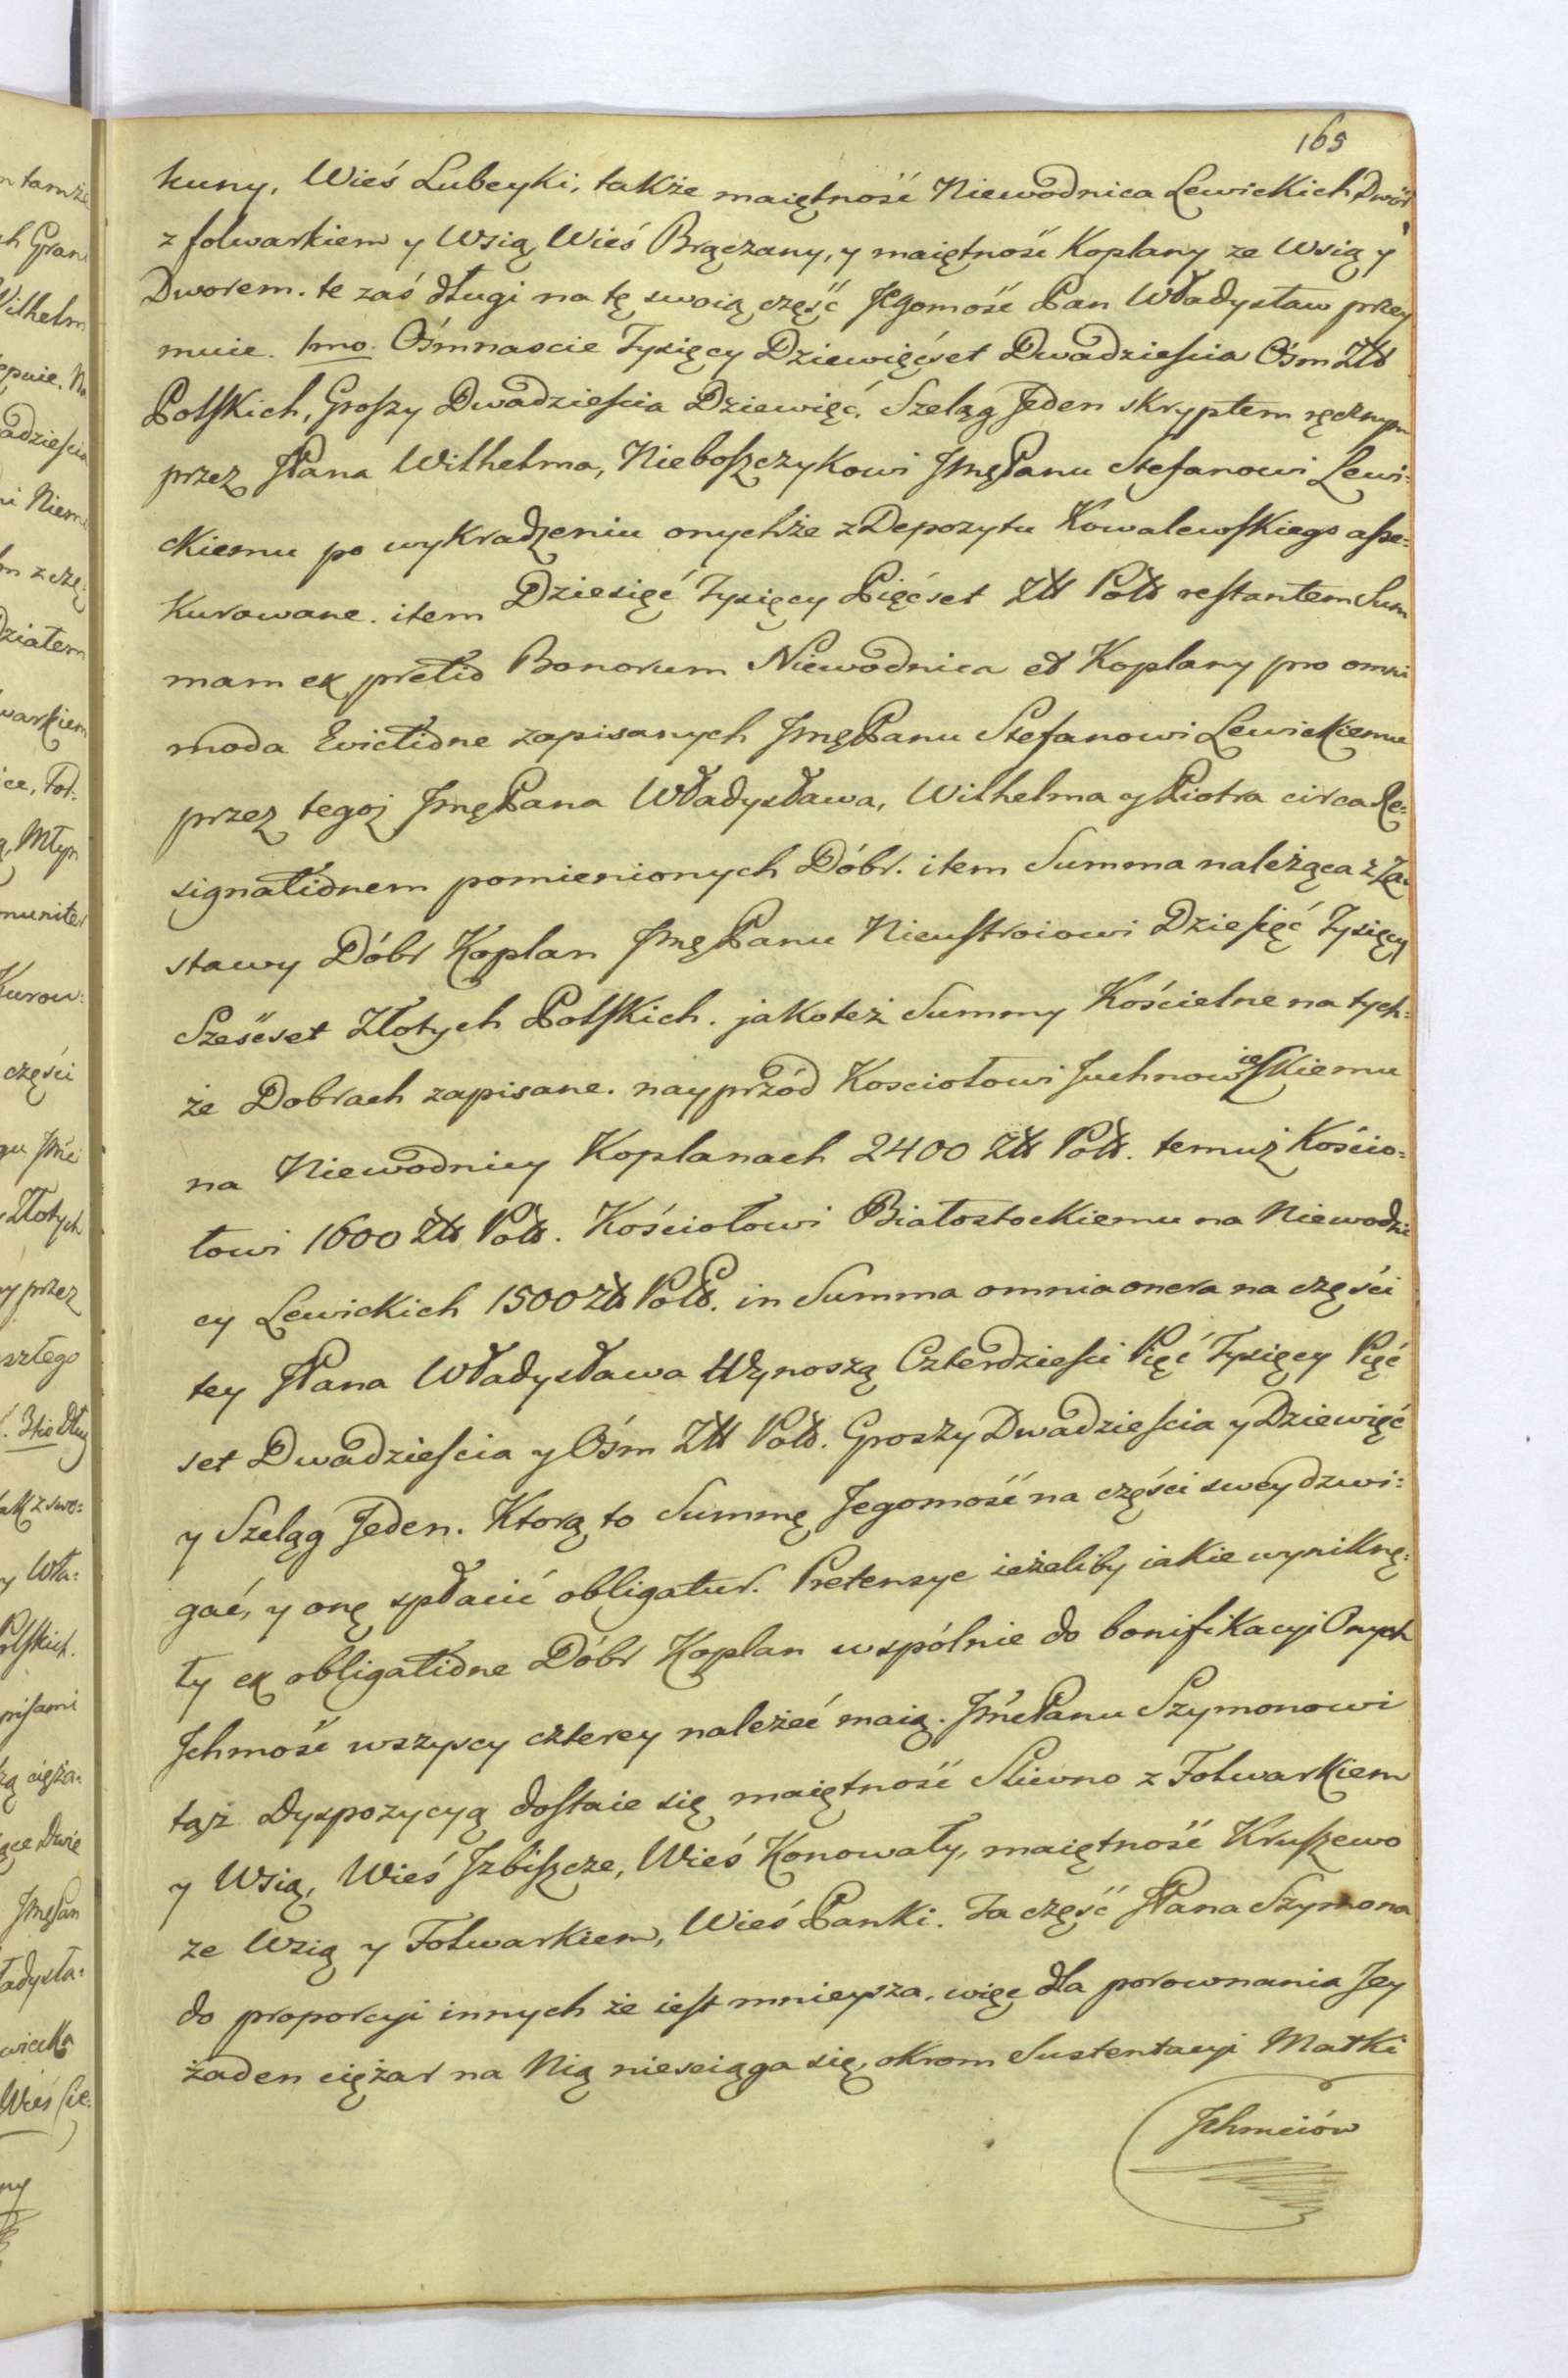 165
kuny, Wieś Lubeyki, także maiętność Niewodnica Lewickich Dwór
z folwarkiem y Wsią, Wieś Brączany, y maiętność Koplany ze Wsią y
Dworem. te zaś długi na tę swoią część Jegomość Pan Władysław przey
muie. 1mo. Ośmnascie Tysięcy Dziewięćset Dwadzieścia Ośm Złł
Polskich, Groszy Dwadzieścia Dziewięć. Szeląg Jeden skryptem ręcznym
przez JPana Wilhelma, Nieboszczykowi JmęPanu Stefanowi Lewi=
ckiemu po wykradzeniu onychże z Depozytu Kowalewskiego asse=
kurowane. item Dziesięć Tysięcy Pięćset Złł Poll restantem Sum
mam ex pretio Bonorum Niewodnica et Koplany pro omni
moda Evictione zapisanych JmęPanu Stefanowi Lewickiemu
przez tegoż JmęPana Władysława, Wilhelma y Piotra circa Re=
signationem pomienionych Dóbr. item Summa należąca z Za=
stawy Dóbr Koplan JmęPanu Nieustroiowi Dziesięć Tysięcy
Sześćset Złotych Polskich. jakoteż Summy Kościelne na tych=
że Dobrach zapisane. nayprzód Kosciołowi Juchnowieskiemu
na Niewodnicy Koplanach 2400 Złł Poll. temuż Kościo=
łowi 1600 Złł Poll. Kościołowi Białostockiemu na Niewodni
cy Lewickich 1500 Złł Poll. in Summa omnia onera na części
tey JPana Władysława Wynoszą Czterdzieści Pięć Tysięcy Pięć
set Dwadzieścia y Ośm Złł Poll. Groszy Dwadzieścia y Dziewięć
y Szeląg Jeden. Ktorą to Summę Jegomość na części swey dzwi=
gać, y onę spłacić obligatur. Pretensye ieżeliby iakie wyniknę=
ły ex obligatione Dóbr Koplan wspólnie do bonifikacyi Onych
Jchmość wszyscy czterey należeć maią. JmćPanu Szymonowi
tąż Dyspozycyą dostaie się maiętność Sliwno z Folwarkiem
y Wsią, Wieś Jzbiszcze, Wieś Konowały, maiętność Kruszewo
ze Wsią y Folwarkiem, Wieś Panki. Ta część JPana Szymona
do proporcyi innych że iest mnieysza, więc dla porownania Jey
żaden ciężar na Nią niesciąga się, okrom Sustentacyi Matki
Jchmciów